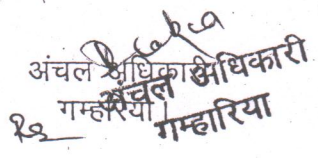 अंचल अधिकारी
गम्हारिया।
अंचल अधिकारी
गम्हारिया